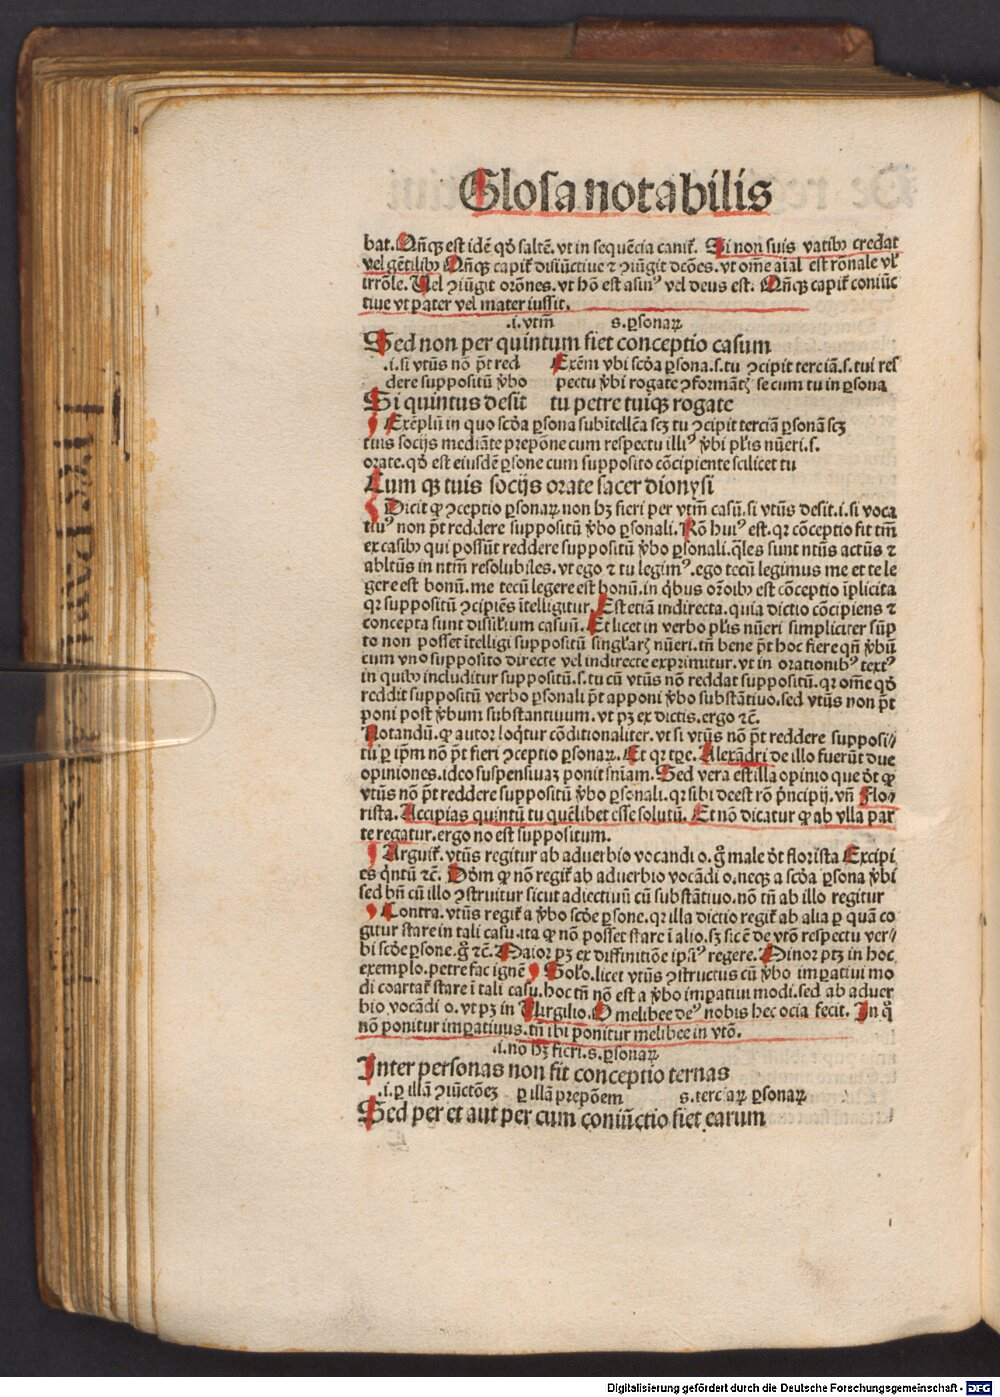 Glosa notabilis
bat. Qñqꝫ est idē qd̓ saltē. vt in sequēcia canit̃. Si non suis vatibꝰ credat
vel gētilibꝰ Qñqꝫ capit̃ disiūctiue ⁊ ꝯiūgit dcōes. vt om̄e aīal est rōnale vl̓
irrōle. Uel ꝯiūgit orōnes. vt hō est asinꝰ vel deus est. Qñqꝫ capit̃ coniūc
tiue vt pater vel mater iussit.
.i. vtm̄ s. ꝑsonaꝝ
Sed non per quintum fiet conceptio casum
.i. si vtūs nō pt̄ red Exēm vbi scd̓a ꝑsona. s. tu ꝯcipit terciā. s. tui res
dere suppositū v̓bo pectu v̓bi rogate ꝯformātꝫ se cum tu in ꝑsona
Si quintus desit tu petre tuiqꝫ rogate
Exēplū in quo scd̓a ꝑsona subītellēa scꝫ tu ꝯcipit terciā ꝑsonā scꝫ
tuis socijs mediāte prepōne cum respectu illiꝰ v̓bi pl̓is nūeri. s.
orate. qd̓ est eiusdē ꝑsone cum supposito cōcipiente scilicet tu
Cum qꝫ tuis socijs orate sacer dionysi
Dicit ꝙ ꝯceptio ꝑsonaꝝ non hꝫ fieri per vtm̄ casū. si vtūs desit. i. si voca
tiuꝰ non pt̄ reddere suppositū v̓bo ꝑsonali. Rō huiꝰ est. qꝛ cōceptio fit tm̄
ex casibꝰ qui possūt reddere suppositū v̓bo ꝑsonali. q̄les sunt ntūs actūs ⁊
abltūs in ntm̄ resolubiles. vt ego ⁊ tu legimꝰ. ego tecū legimus me et te le
gere est bonū. me tecū legere est bonū. in q̓bus orōibꝰ est cōceptio īplicita
qꝛ suppositū ꝯcipiēs ītelligitur. Est etiā indirecta. quia dictio cōcipiens ⁊
concepta sunt dissil̓ium casuū. Et licet in verbo pl̓is nūeri simpliciter sūp
to non posset ītelligi suppositū singl̓arꝫ nūeri. tn̄ bene pt̄ hoc fiere qn̄ v̓bū
cum vno supposito directe vel indirecte exprimitur. vt in orationibꝰ textꝰ
in quibꝰ includitur suppositū. s. tu cū vtūs nō reddat suppositū. qꝛ om̄e qd̓
reddit suppositū verbo ꝑsonali pt̄ apponi v̓bo substātiuo. sed vtūs non pt̄
poni post v̓bum substantiuum. vt pꝫ ex dictis. ergo ⁊c̄.
Notandū. ꝙ autor loq̓tur cōditionaliter. vt si vtūs nō pt̄ reddere supposi⸗
tū ꝑ ip̄m nō pt̄ fieri ꝯceptio ꝑsonaꝝ. Et qꝛ tꝑe. Alexādri de illo fuerūt due
opiniones. ideo suspensiuaꝫ ponit sniam. Sed vera est illa opinio que d̄t ꝙ
vtūs nō pt̄ reddere suppositū v̓bo ꝑsonali. qꝛ sibi deest rō p̓ncipij. vn̄ Flo⸗
rista. Accipias quintū tu quēlibet esse solutū. Et nō dicatur ꝙ ab vlla par
te regatur. ergo no est suppositum.
Arguit̃. vtūs regitur ab aduerbio vocandi o. g̊ male d̄t florista Excipi
es q̓ntū ⁊c̄. Dōm ꝙ nō regit̃ ab aduerbio vocādi o. neqꝫ a scd̓a ꝑsona v̓bi
sed bn̄ cū illo ꝯstruitur sicut adiectiuū cū substātiuo. nō tn̄ ab illo regitur
Contra. vtūs regit̃ a v̓bo scd̓e ꝑsone. qꝛ illa dictio regit̃ ab alia ꝑ quā co
gitur stare in tali casu. ita ꝙ nō posset stare ī alio. sꝫ sic ē de vtō respectu ver⸗
bi scd̓e ꝑsone. g̊ ⁊c̄. Maior pꝫ ex diffinitiōe ipsiꝰ regere. Minor ptꝫ in hoc
exemplo. petre fac ignē Sol̓o. licet vtūs ꝯstructus cū v̓bo imꝑatiui mo
di coartat̃ stare ī tali casu. hoc tn̄ nō est a v̓bo imꝑatiui modi. sed ab aduer
bio vocādi o. vt pꝫ in Uirgilio. O melibee deꝰ nobis hec ocia fecit. In q̊
nō ponitur imꝑatiuus. tn̄ ibi ponitur melibee in vtō.
.i. no hꝫ fieri. s. ꝑsonaꝝ
Inter personas non fit conceptio ternas
.i. ꝑ illā ꝯiūctōeꝫ ꝑ illā prepōem s. terciaꝝ ꝑsonaꝝ
Sed per et aut per cum coniūctio fiet earum
Digitalisierung gefördert durch die Deutsche Forschungsgemeinschaft - DFG